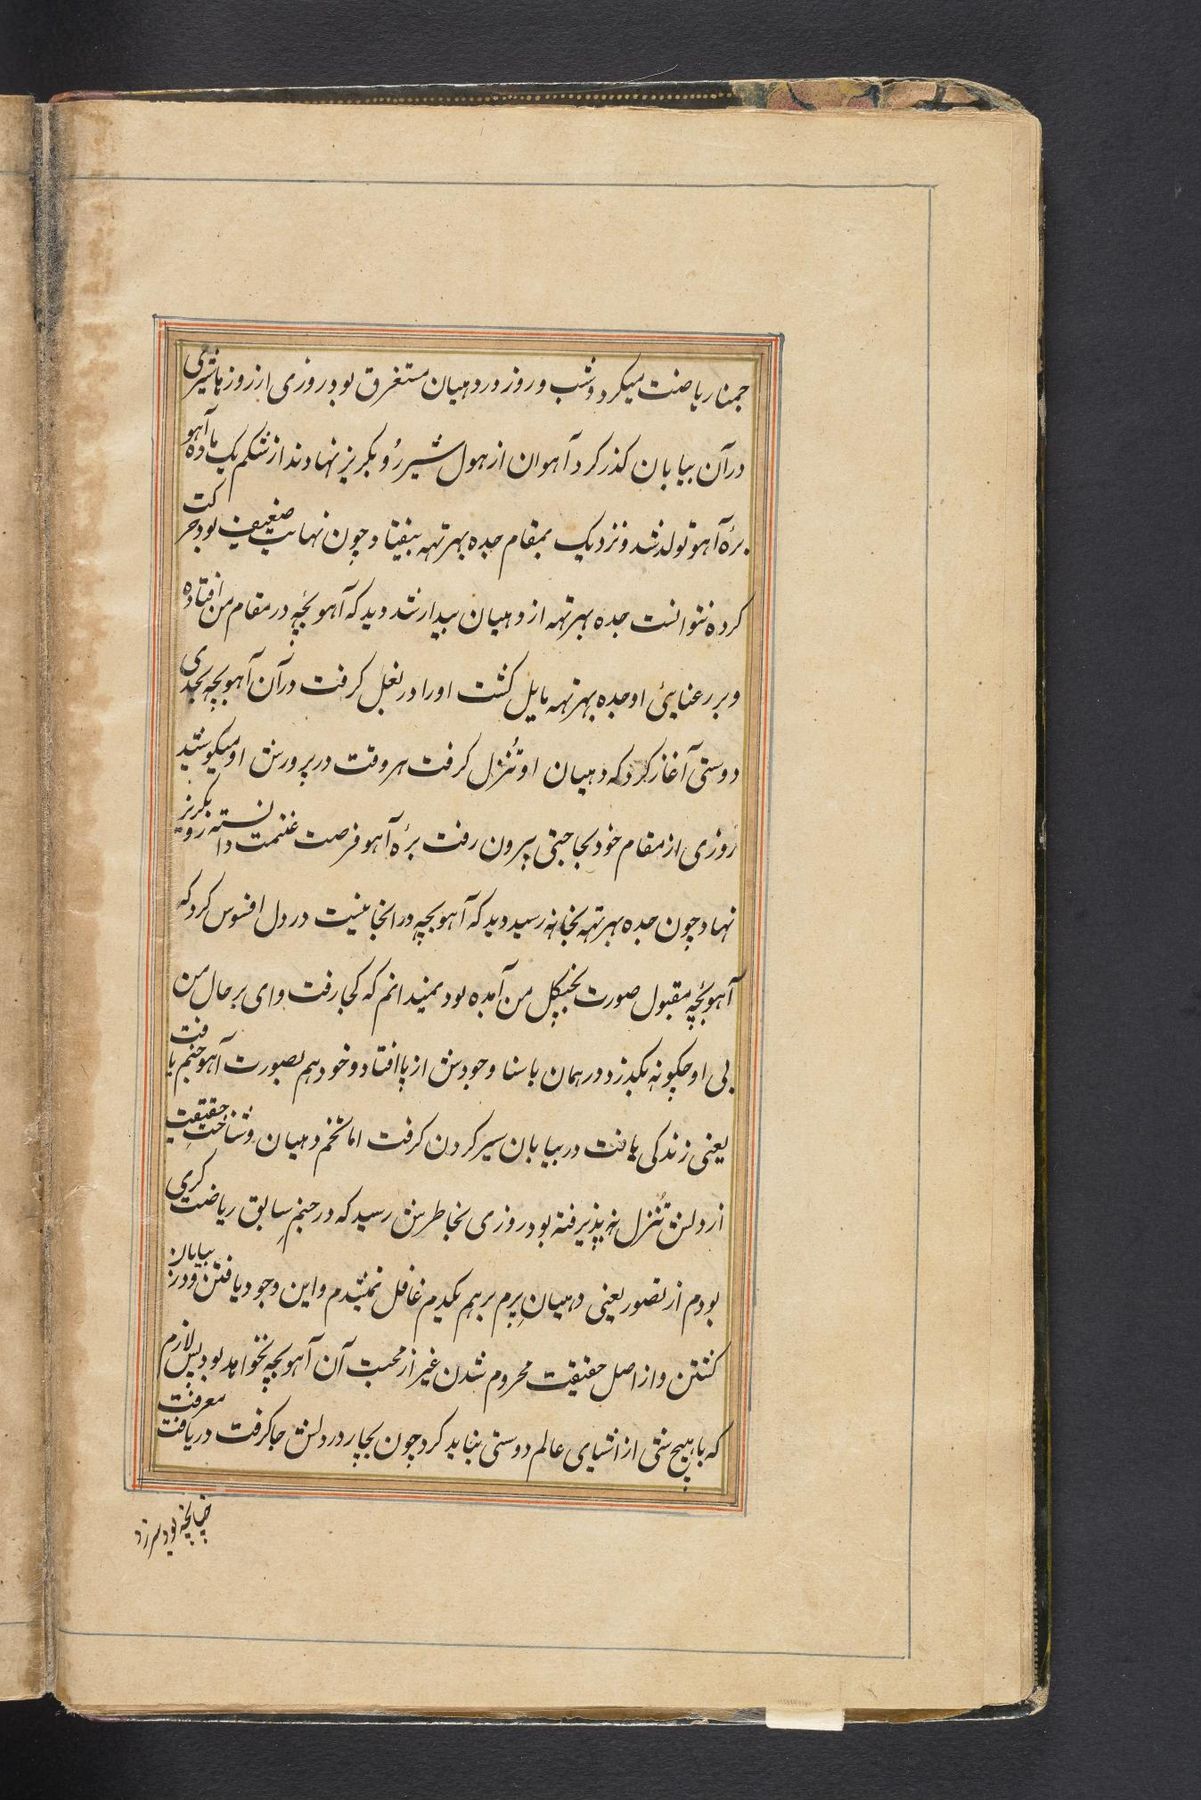 جمنا ریاضت میکرد و شب و روز در دهیان مستغرق بود روزی از روزها شیری
در آن بیابان گذر کرد آهوان از هول شیر رُو بگریز نهادند از شکم یک ماده آهو
برهٔ آهو تولد شد و نزدیک بمقام جده بهرتهه بیفتاد چون نهایت ضعیف بود حرکت
کرده نتوانست جده بهرتهه از دهیان بیدار شد دید که آهو بچهٔ در مقام من افتاده
و بر رعنایئ او جده بهرتهه مایل گشت او را در بغل گرفت در آن آهو بچه بحدی
دوستی آغاز کرد که دهیان او تُنزل گرفت هر وقت در پرورش او میکوشید
رُوزی از مقام خود بحاجتی بیرون رفت برهٔ آهو فرصت غنیمت دانسته رو بگریز
نهاد چون جده بهرتهه بخانه رسید دید که آهو بچه در انجا نیست در دل افسوس کرد که
آهو بچهٔ مقبول صورت بخبگل من آمده بود نمیدانم که کجا رفت وای بر حال من
بی او چگونه بگذرد در همان باسنا وجودش از پا افتاد و خود هم بصورت آهو جنم یافت
یعنی زندگی یافت در بیابان سیر کردن گرفت اما تخم دهیان و شناخت حقیقت
از دلش تُنزل نه پذیرفته بود روزی بخاطرش رسید که در جنمِ سابق ریاضت گری
بودم از تصور یعنی دهیانِ پرم برهم یکدم غافل نمیشدم و این وجود یافتن و در بیابان
گشتن و از اصل حقیقت محروم شدن غیر از محبت آن آهو بچه نخواهد بود پس لازم
که با هیچ شئ از اشیای عالم دوستی نباید کرد چون بچار در دلش جا گرفت دریافت معرفت
چنانچه بود